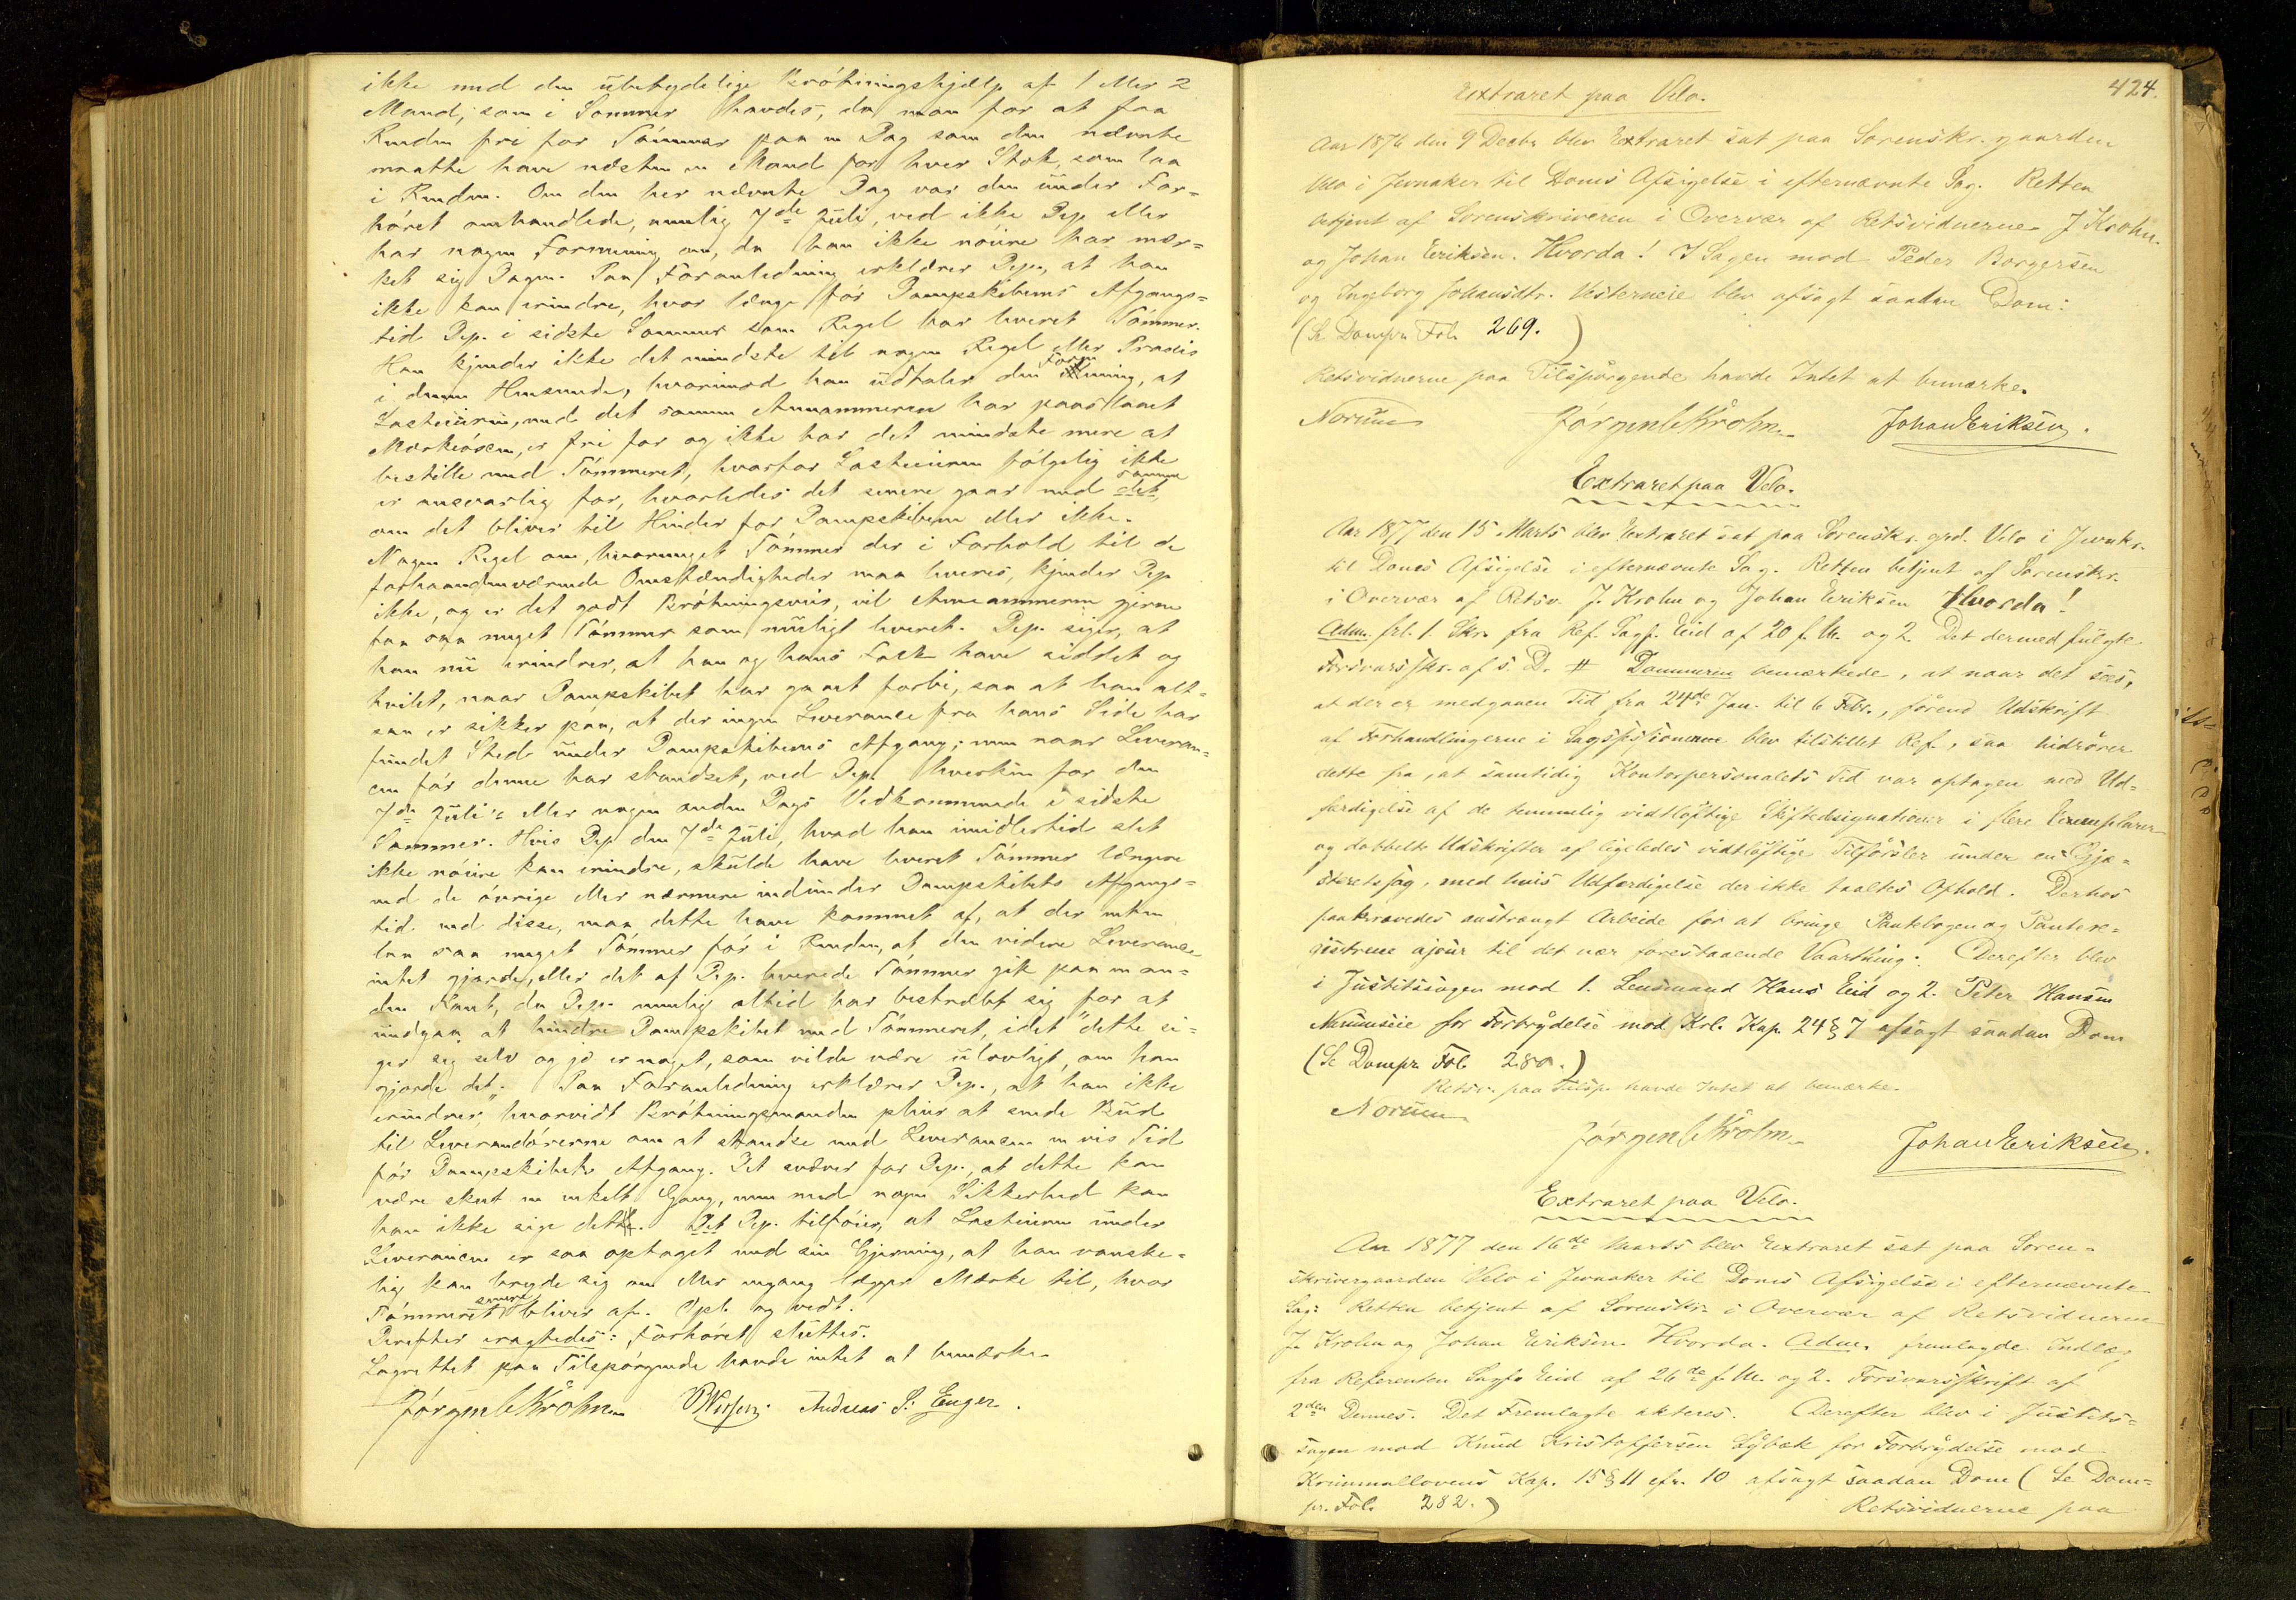 ikke med den ubetydelige Brötningshjælp af 1 eller 2
Mand, som i Sommer havdes, da man for at faa
Renden fri for Tömmer paa en Dag som den nævnte
maatte have næsten en Mand for hver Stok, som laa
i Renden. Om den her nævnte Dag var den under For-
höret omhandlede, nemlig 7de Juli, ved ikke Dep. eller
har nogen Formening om, da han ikke nöiere har mær-
ket sig Dagen. Paa Foranledning erklærer Dep., at han
ikke kan erindre, hvor længe för Dampskibens Afgangs-
tid Dep. i sidste Sommer som Regel har leveret Tömmer.
Han kjender ikke det mindste til nogen Regel eller Praxis
i denne Henseende, hvorimod han udtaler den Formening, at
Lasteieren, med det samme Annammeren har paaslaaet
Mærkeöxen, er fri for og ikke har det mindste mere at
bestille med Tömmeret, hvorfor Lasteieren fölgelig ikke
er ansvarlig for, hvorledes det senere gaar med samme
om det bliver til Hinder for Dampskibene eller ikke.
Nogen Regel om, hvormeget Tömmer der i Forhold til de
forhaandenværende Omstændigheder maa leveres, kjender Dep.
ikke, og er det godt Brötningsveir, vil Annammeren gjerne
faa saa meget Tömmer som muligt leveret. Dep. siger, at
han nu erindrer, at han og hans Folk have siddet og
hvilet, naar Dampskibet har gaaet forbi, saa at han alt-
saa er sikker paa, at der ingen Leverance fra hans Side har
fundet Sted under Dampskibenes Afgang; men naar Leveran-
cen för denne har standset, ved Dep. hverken for den
7de Juli's eller nogen anden Dags Vedkommende i sidste
Sommer. Hvis Dep. den 7de Juli, hvad han imidlertid slet
ikke nöiere kan erindre, skulde have leveret Tömmer længere
end de övrige eller nærmere indunder Dampskibets Afgangs-
tid end disse, maa dette have kommet af, at der enten
laa saa meget Tömmer för i Renden, at den videre Leverance
intet gjorde, eller det af Dep. leverede Tömmer gik paa en an-
den Kant, da Dep. nemlig altid har bestræbt sig for at
undgaa at hindre Dampskibet med Tömmeret, idet "dette si-
ger sig selv og jo er noget, som vilde være ulovligt, om han
gjorde det". Paa Foranledning erklærer Dep., at han ikke
erindrer, hvorvidt Brötningsmanden pleier at sende Bud
til Leverandörerne om at standse med Leverancen en vis Tid
för Dampskibets Afgang. Det svæver for Dep., at dette kan
være skeet en enkelt Gang, men med nogen Sikkerhed kan
han ikke sige dette. Dep. tilföier, at Lasteieren under
Leverancen er saa optaget med sin Gjerning, at han vanske-
lig kan bryde sig om eller engang lægger Mærke til, hvor
Tömmeret senere bliver af. Opl. og vedt.
Derefter eragtedes: Forhöret sluttes.
Lagrettet paa Tilspörgende havde intet at bemærke.
Jörgen C Krohn. Andreas P. Enger.
424.
Extraret paa Velo.
Aar 1876 den 9 Decbr. blev Extraret sat paa Sorenskr. gaarden
Velo i Jevnaker til Doms Afsigelse i efternævnte Sag. Retten
betjent af Sorenskriveren i Overvær af Retsvidnerne J Krohn.
og Johan Eriksen. Hvorda! I Sagen mod Peder Borgersen
og Ingeborg Johansdtr. Vesterneie blev afsagt saadan Dom:
(Se Dompr. Fol. 269.)
Retsvidnerne paa Tilspörgende havde Intet at bemærke.
Norum Jörgen C Krohn. Johan Eriksen.
Extraret paa Velo.
Aar 1877 den 15 Marts blev Extraret sat paa Sorenskr. grd. Velo i Jevnkr.
til Doms Afsigelse i efternævnte Sag. Retten betjent af Sorenskr.
i Overvær af Retsv. J. Krohn og Johan Eriksen Hvorda!
Adm. frl. 1. Skr. fra Ref. Sagf. Eid af 20 f. M. og 2. Det dermed fulgte
Forsvarsskr. af s. D. # Dommeren bemærkede, at naar det sees,
at der er medgaaen Tid fra 24de Jan. til 6 Febr., förend Udskrift
af Forhandlingerne i Sagsessionerne blev tilstillet Ref., saa hidrörer
dette fra, at samtidig Kontorpersonalets Tid var optagen med Ud-
færdigelse af de temmelig vidtlöftige Skiftedesignationer i flere Exemplarer
og dobbelte Udskrifter af ligeledes vidtlöftige Tilförsler under en Gjæ-
steretssag, med hvis Udfærdigelse der ikke taaltes Ophold. Derhos
paakrævedes anstrængt Arbeide for at bringe Pantebogen og Pantere-
gistrene ajour til det nær forestaaende Vaarthing. Derefter blev
i Justitssagen mod 1. Lensmand Hans Eid og 2. Peter Hansen
for Forbrydelse mod Krl. Kap. 24 § 7 afsagt saadan Dom
(Se Dompr. Fol. 280.)
Retsv. paa Tilsp. havde Intet at bemærke.
Norum
Jörgen C Krohn. Johan Eriksen.
Extraret paa Velo.
Aar 1877 den 16de Marts blev Extraret sat paa Soren-
skrivergaarden Velo i Jevnaker til Doms Afsigelse i efternævnte
Sag. Retten betjent af Sorenskr. i Overvær af Retsvidnerne
J. Krohn og Johan Eriksen. Hvorda. Adm. fremlagde Indlæg
fra Referenten Sagf. Eid af 26de f. M. og 2. Forsvarsskrift af
2den Dennes. Det Fremlagte akteres. Derefter blev i Justits-
sagen mod Knud Kristoffersen Lybæk for Forbrydelse mod
Kriminallovens Kap. 15 § 11 cfr. 10 afsagt saadan Dom (Se Dom-
pr. Fol. 282.) Retsvidnerne paa